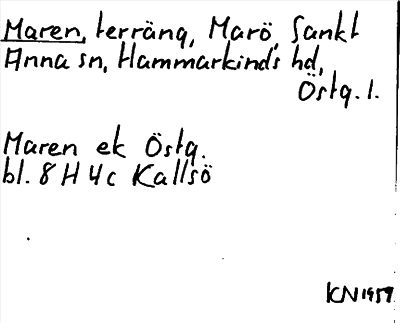 Maren, terräng, Marö, Sankt
Anna sn, Hammarkinds hd,
Östg. l.
Maren ek Östg.
bl. 8 H 4 c Kallsö
KN 1959